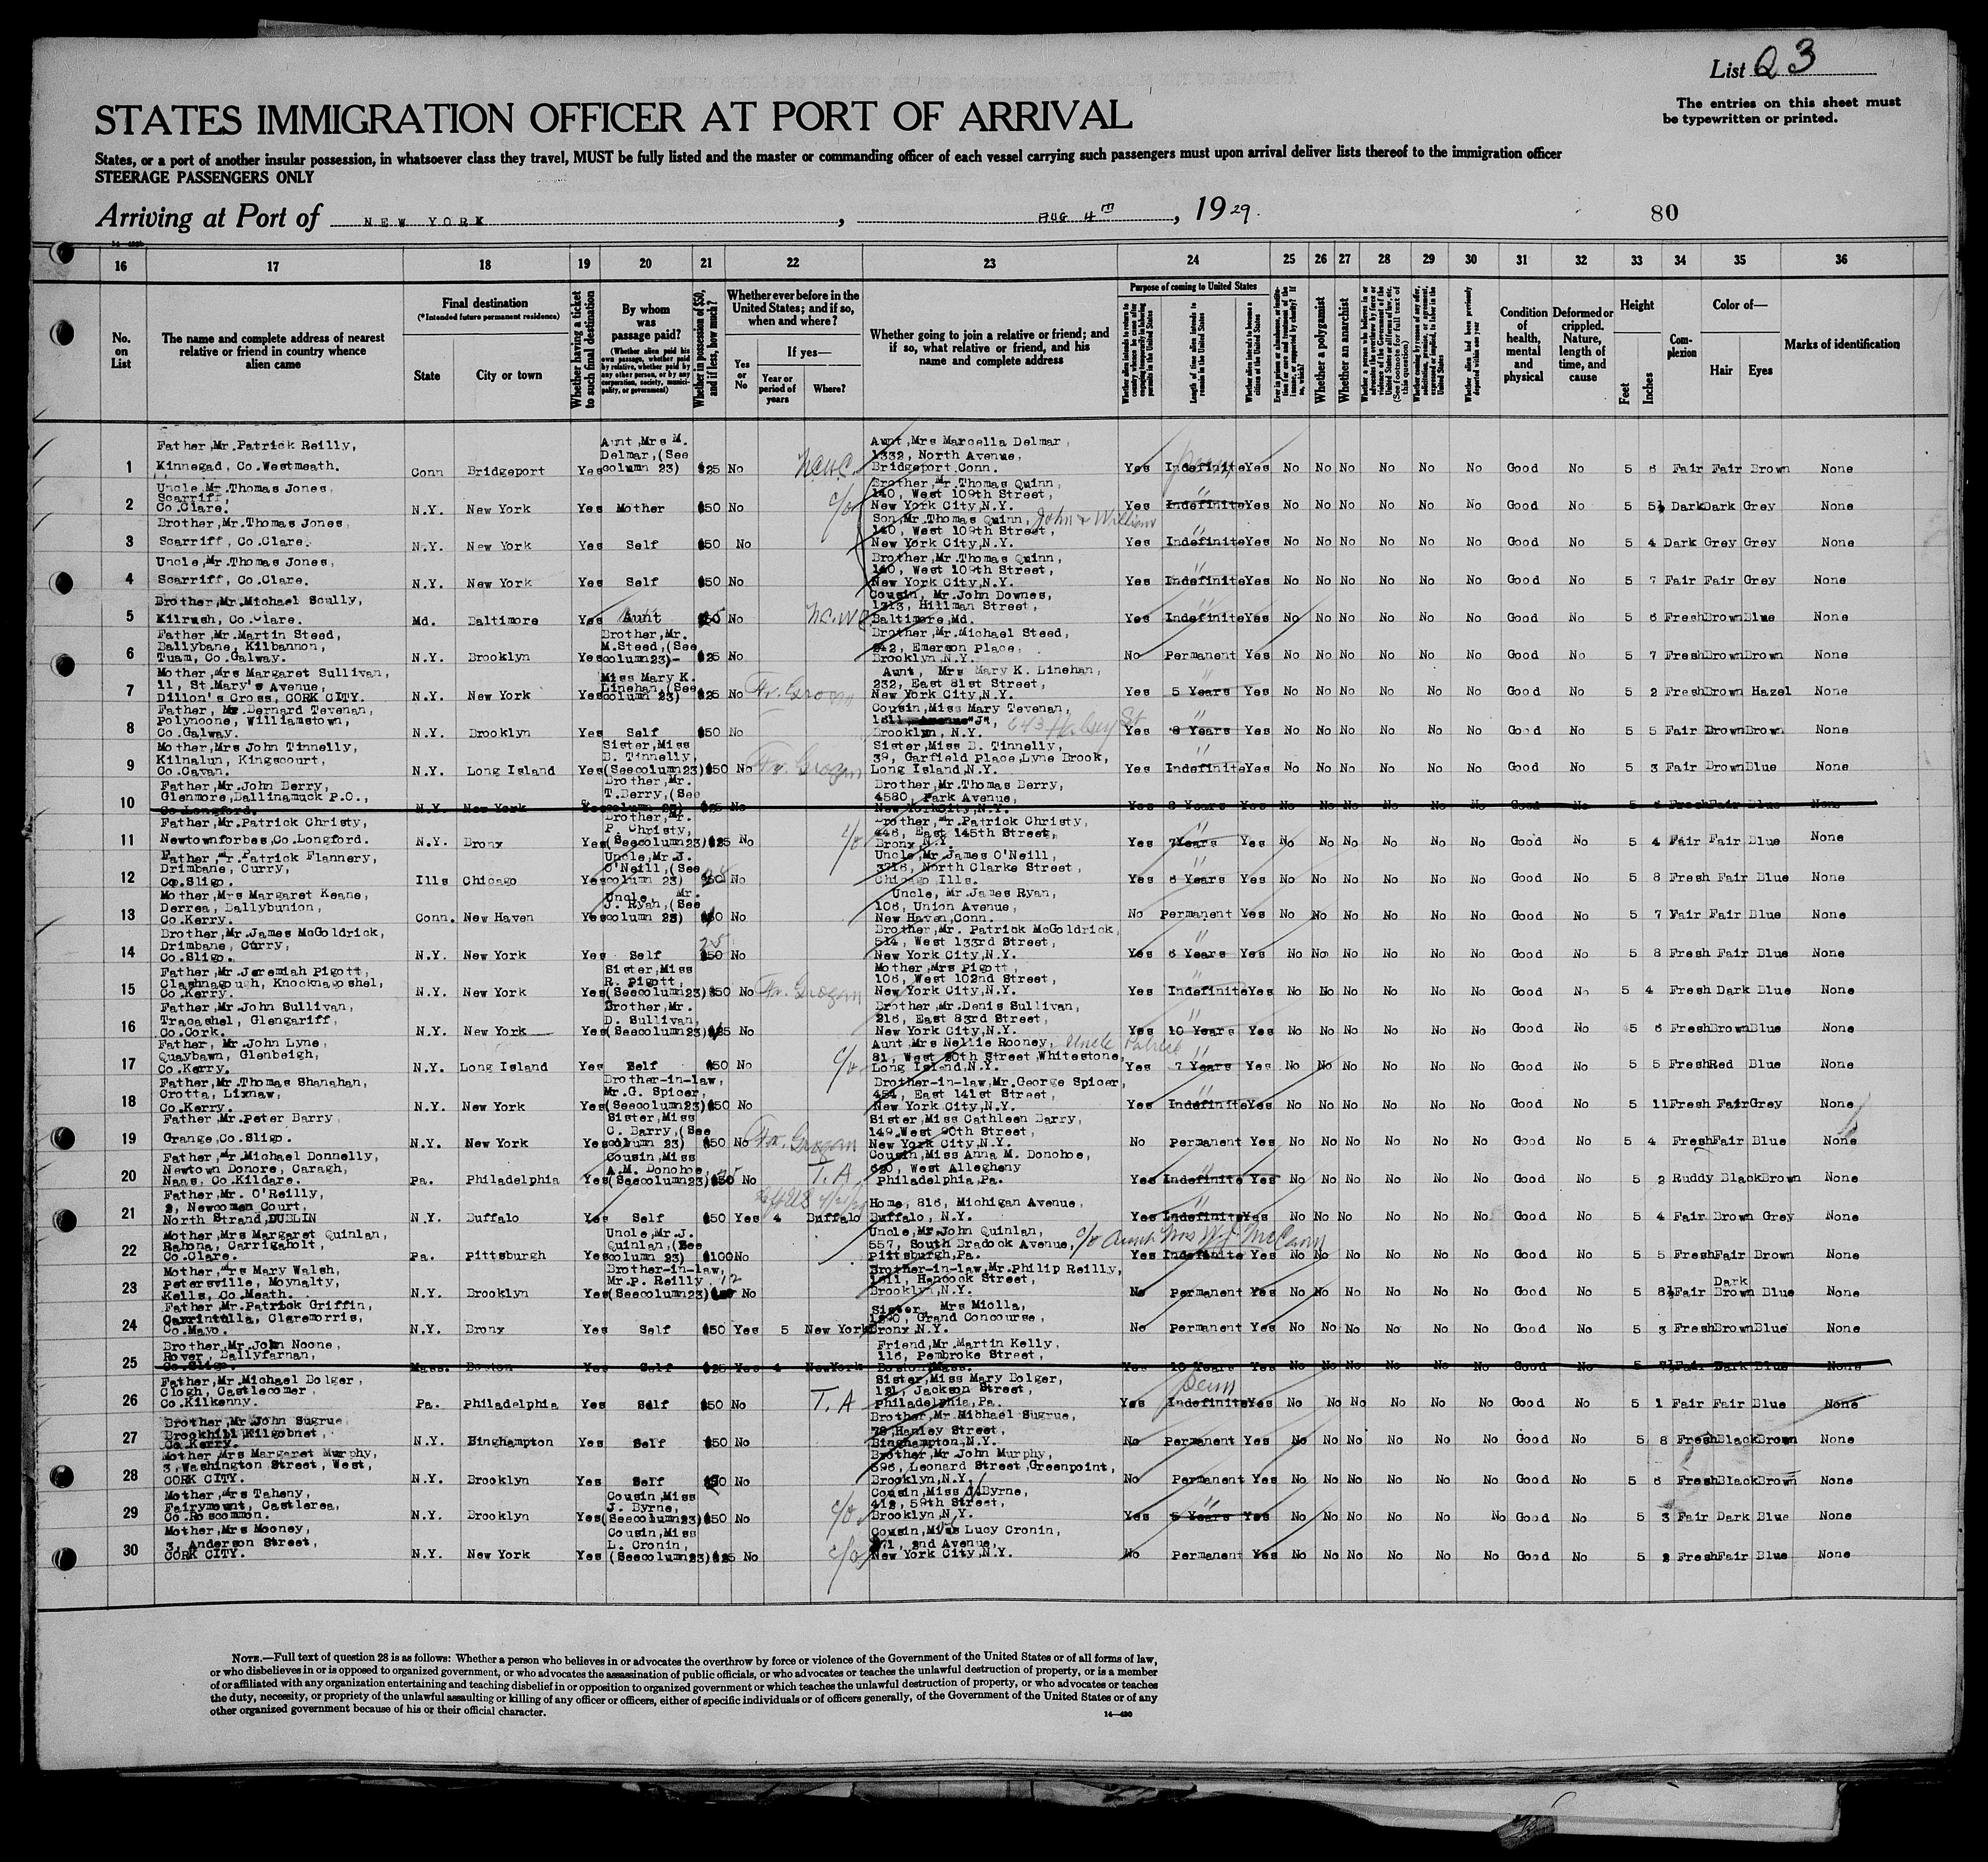 List Q 3
The entries on this sheet must
be typewritten or printed.
STATES IMMIGRATION OFFICER AT PORT OF ARRIVAL
States, or a port of another insular possession, in whatsoever class they travel, MUST be fully listed and the master or commanding officer of each vessel carrying such passengers must upon arrival deliver lists thereof to the immigration officer
STEERAGE PASSENGERS ONLY
Arriving at Port of NEW YORK, AUG 4TH, 1929.
80
16 17 18 19 20 21 22 23 24 25 26 27 28 29 30 31 32 33 34 35 36
No. on List
The name and complete address of nearest relative or friend in country whence alien came
Final destination
(*Intended future permanent residence)
State
City or town
Whether having a ticket to such final destination
By whom was passage paid?
(Whether alien paid his own passage, whether paid by relative, whether paid by any other person, or by any corporation, society, municipality, or government)
Whether in possession of $50, and if less, how much?
Whether ever before in the United States; and if so, when and where?
Yes or No
If yes—
Year or period of years
Where?
Whether going to join a relative or friend; and if so, what relative or friend, and his name and complete address
Purpose of coming to United States
Length of time alien intends to remain in the United States
Whether alien intends to become a citizen of the United States
Whether a polygamist
Whether an anarchist
Whether alien had been previously deported within one year
Condition of health, mental and physical
Deformed or crippled. Nature, length of time, and cause
Height
Feet
Inches
Complexion
Color of—
Hair
Eyes
Marks of identification
1 Father,Mr.Patrick Reilly, Kinnegad, Co.Westmeath. Conn Bridgeport Yes Aunt,Mrs M. Delmar,(See column 23) $25 No Aunt,Mrs Marcella Delmar, 1332, North Avenue, Bridgeport.Conn. Yes Indefinite Yes No No No No No No Good No 5 6 Fair Fair Brown None
2 Uncle,Mr.Thomas Jones, Scarriff, Co.Clare. N.Y. New York Yes Mother $50 No c/o Brother,Mr.Thomas Quinn, 140, West 109th Street, New York City,N.Y. Yes Indefinite Yes No No No No No No Good No 5 5½ Dark Dark Grey None
3 Brother,Mr.Thomas Jones, Scarriff, Co.Clare. N.Y. New York Yes Self $50 No Son,Mr.Thomas Quinn, John & William 140, West 109th Street, New York City,N.Y. Yes Indefinite Yes No No No No No No Good No 5 4 Dark Grey Grey None
4 Uncle,Mr.Thomas Jones, Scarriff, Co.Clare. N.Y. New York Yes Self $50 No Brother,Mr.Thomas Quinn, 140, West 109th Street, New York City,N.Y. Yes Indefinite Yes No No No No No No Good No 5 7 Fair Fair Grey None
5 Brother,Mr.Michael Scully, Kilrush, Co.Clare. Md. Baltimore Yes Aunt No Cousin, Mr.John Downes, 1313, Hillman Street, Baltimore,Md. Yes Indefinite Yes No No No No No No Good No 5 6 Fresh Brown Blue None
6 Father,Mr.Martin Steed, Ballybane, Kilbannon, Tuam, Co.Galway. N.Y. Brooklyn Yes Brother,Mr. M.Steed,(See column23)- $25 No Brother,Mr.Michael Steed, 242, Emerson Place, Brooklyn,N.Y. No Permanent Yes No No No No No No Good No 5 7 Fresh Brown Brown None
7 Mother,Mrs Margaret Sullivan, 11, St.Mary's Avenue, Dillon's Cross, CORK CITY. N.Y. New York Yes Miss Mary K. Linehan,(See column 23) $25 No Fr. Grogan Aunt, Mrs Mary K. Linehan, 232, East 81st Street, New York City,N.Y. Yes 5 Years Yes No No No No No No Good No 5 2 Fresh Brown Hazel None
8 Father, Mr.Bernard Tevenan, Polynoone, Williamstown, Co.Galway. N.Y. Brooklyn Yes Self $50 No Cousin,Miss Mary Tevenan, 1811, Avenue"J", 643 Halsey St Brooklyn, N.Y. Yes 8 Years Yes No No No No No No Good No 5 5 Fair Brown Brown None
9 Mother,Mrs John Tinnelly, Kilnalun, Kingscourt, Co.Cavan. N.Y. Long Island Yes Sister,Miss B. Tinnelly, (Seecolumn23) $50 No Fr. Grogan Sister,Miss B. Tinnelly, 39, Garfield Place,Lyne Brook, Long Island,N.Y. Yes Indefinite Yes No No No No No No Good No 5 3 Fair Brown Blue None
10 Father,Mr.John Berry, Glenmore,Ballinamuck P.O., Co.Longford. N.Y. New York Yes Brother,Mr. T.Berry,(See column 23) $25 No Brother,Mr.Thomas Berry, 4580, Park Avenue, New York City,N.Y. Yes 8 Years Yes No No No No No No Good No 5 6 Fresh Fair Blue None
11 Father,Mr.Patrick Christy, Newtownforbes,Co.Longford. N.Y. Bronx Yes Brother,Mr. P. Christy, (Seecolumn23) $25 No c/o Brother,Mr.Patrick Christy, 446, East 145th Street, Bronx N.Y. Yes 7Years Yes No No No No No No Good No 5 4 Fair Fair Blue None
12 Father,Mr.Patrick Flannery, Drimbane, Curry, Co.Sligo. Ills Chicago Yes Uncle,Mr.J. O'Neill,(See column 23) No Uncle,Mr.James O'Neill, 3716, North Clarke Street, Chicago,Ills. Yes 6 Years Yes No No No No No No Good No 5 8 Fresh Fair Blue None
13 Mother,Mrs Margaret Keane, Derrea, Ballybunion, Co.Kerry. Conn. New Haven Yes Uncle, Mr. J. Ryan,(See column 23) No Uncle, Mr.James Ryan, 106, Union Avenue, New Haven,Conn. No Permanent Yes No No No No No No Good No 5 7 Fair Fair Blue None
14 Brother,Mr.James McGoldrick, Drimbane, Curry, Co.Sligo. N.Y. New York Yes Self 25 $50 No Brother,Mr. Patrick McGoldrick, 514, West 133rd Street, New York City,N.Y. Yes 6 Years Yes No No No No No No Good No 5 8 Fresh Fair Blue None
15 Father,Mr.Jeremiah Pigott, Clashnagough, Knocknagoshel, Co.Kerry. N.Y. New York Yes Sister,Miss R. Pigott, (Seecolumn23) $50 No Fr. Grogan Mother,Mrs Pigott, 106, West 102nd Street, New York City,N.Y. Yes Indefinite Yes No No No No No No Good No 5 4 Fresh Dark Blue None
16 Father,Mr.John Sullivan, Tracashel, Glengariff, Co.Cork. N.Y. New York Yes Brother,Mr. D. Sullivan, (Seecolumn23) $25 No Brother,Mr.Denis Sullivan, 216, East 83rd Street, New York City,N.Y. Yes 10 Years Yes No No No No No No Good No 5 6 Fresh Brown Blue None
17 Father, Mr.John Lyne, Quaybawn, Glenbeigh, Co.Kerry. N.Y. Long Island Yes Self $50 No c/o Aunt,Mrs Nellie Rooney, Uncle Patrick 81, West 90th Street,Whitestone, Long Island,N.Y. Yes 7 Years Yes No No No No No No Good No 5 5 Fresh Red Blue None
18 Father,Mr.Thomas Shanahan, Crotta, Lixnaw, Co.Kerry. N.Y. New York Yes Brother-in-law, Mr.G. Spicer, (Seecolumn23) $50 No Brother-in-law,Mr.George Spicer, 454, East 141st Street, New York City,N.Y. Yes Indefinite Yes No No No No No No Good No 5 11 Fresh Fair Grey None
19 Father,Mr.Peter Barry, Grange,Co.Sligo. N.Y. New York Yes Sister,Miss C. Barry,(See column 23) $50 No Fr. Grogan Sister,Miss Cathleen Barry, 149,West 90th Street, New York City,N.Y. No Permanent Yes No No No No No No Good No 5 4 Fresh Fair Blue None
20 Father,Mr.Michael Donnelly, Newtown Donore, Caragh, Naas, Co.Kildare. Pa. Philadelphia Yes Cousin,Miss A.M. Donohoe, (Seecolumn23) No T.A Cousin,Miss Anna M. Donohoe, 620, West Allegheny Philadelphia,Pa. Yes Indefinite Yes No No No No No No Good No 5 2 Ruddy Black Brown None
21 Father,Mr. O'Reilly, 2, Newcomen Court, North Strand,DUBLIN N.Y. Buffalo Yes Self $50 Yes 4 Buffalo Home, 816, Michigan Avenue, Buffalo, N.Y. Yes Indefinite Yes No No No No No No Good No 5 4 Fair Brown Grey None
22 Mother,Mrs Margaret Quinlan, Rahona, Carrigaholt, Co.Clare. Pa. Pittsburgh Yes Uncle,Mr.J. Quinlan,(See column 23) $100 No Uncle,Mr.John Quinlan, 557, South Bradock Avenue, c/o Aunt Mrs W.J. McCann Pittsburgh,Pa. Yes Indefinite Yes No No No No No No Good No 5 5 Fresh Fair Brown None
23 Mother,Mrs Mary Walsh, Petersville, Moynalty, Kells, Co.Meath. N.Y. Brooklyn Yes Brother-in-law, Mr.P. Reilly, (Seecolumn23) 12 No Brother-in-law,Mr.Philip Reilly, 1611, Hancock Street, Brooklyn,N.Y. No Permanent Yes No No No No No No Good No 5 8½ Fair Dark Brown Blue None
24 Father,Mr.Patrick Griffin, Carrintulla, Claremorris, Co.Mayo. N.Y. Bronx Yes Self $50 Yes 5 New York Sister, Mrs Miolla, Grand Concourse, Bronx N.Y. No Permanent Yes No No No No No No Good No 5 3 Fresh Brown Blue None
25 Brother,Mr.John Noone, Rover, Ballyfarnan, Co.Sligo. Mass. Boston Yes Self $25 Yes 4 NewYork Friend,Mr.Martin Kelly, 116, Pembroke Street, Boston,Mass. Yes 10 Years Yes No No No No No No Good No 5 7½ Fair Dark Blue None
26 Father,Mr.Michael Bolger, Clogh, Castlecomer, Co.Kilkenny. Pa. Philadelphia Yes Self $50 No T.A Sister,Miss Mary Bolger, 121, Jackson Street, Philadelphia,Pa. Yes Perm Indefinite Yes No No No No No No Good No 5 1 Fair Fair Blue None
27 Brother,Mr.John Sugrue, Brookhill,Kilgobnet, Co.Kerry. N.Y. Binghampton Yes Self $50 No Brother,Mr.Michael Sugrue, 79,Hanley Street, Binghampton,N.Y. No Permanent Yes No No No No No No Good No 5 8 Fresh Black Brown None
28 Mother,Mrs Margaret Murphy, 3,Washington Street, West, CORK CITY. N.Y. Brooklyn Yes Self No Brother,Mr.John Murphy, 596, Leonard Street,Greenpoint, Brooklyn,N.Y. No Permanent Yes No No No No No No Good No 5 6 Fresh Black Brown None
29 Mother,Mrs Taheny, Fairymount, Castlerea, Co.Roscommon. N.Y. Brooklyn Yes Cousin,Miss J. Byrne, (Seecolumn23) $50 No c/o Cousin,Miss J.Byrne, 412, 59th Street, Brooklyn,N.Y. Yes 5 Years Yes No No No No No No Good No 5 3 Fair Dark Blue None
30 Mother,Mrs Mooney, 3, Anderson Street, CORK CITY. N.Y. New York Yes Cousin,Miss L. Cronin, (Seecolumn23) $25 No c/o Cousin,Miss Lucy Cronin, 971, 2nd Avenue, New York City,N.Y. No Permanent Yes No No No No No No Good No 5 2 Fresh Fair Blue None
NOTE.—Full text of question 28 is as follows: Whether a person who believes in or advocates the overthrow by force or violence of the Government of the United States or of all forms of law,
or who disbelieves in or is opposed to organized government, or who advocates the assassination of public officials, or who advocates or teaches the unlawful destruction of property, or is a member
of or affiliated with any organization entertaining and teaching disbelief in or opposition to organized government or which teaches the unlawful destruction of property, or who advocates or teaches
the duty, necessity, or propriety of the unlawful assaulting or killing of any officer or officers, either of specific individuals or of officers generally, of the Government of the United States or of any
other organized government because of his or their official character.
14—430